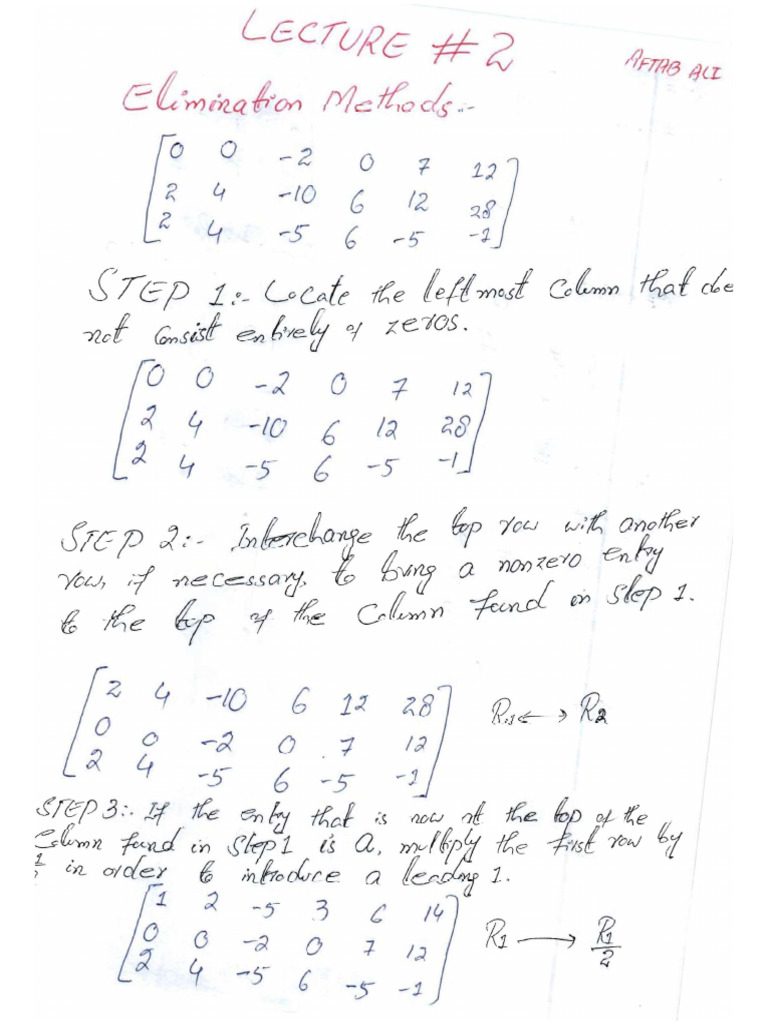 LECTURE #2
AFTAB ALI
Elimination Methods:-
0 0 -2 0 7 12
2 4 -10 6 12 28
2 4 -5 6 -5 -1
STEP 1:- Locate the leftmost Column that doe
not Consist entirely of zeros.
0 0 -2 0 7 12
2 4 -10 6 12 28
2 4 -5 6 -5 -1
STEP 2:- Interchange the top row with another
row, if necessary, to bring a nonzero entry
to the top of the Column found in Step 1.
2 4 -10 6 12 28
R1 ↔ R2
0 0 -2 0 7 12
2 4 -5 6 -5 -1
STEP 3:- If the entry that is now at the top of the
Column found in Step 1 is a, multiply the first row by
in order to introduce a leading 1.
1 2 -5 3 6 14
0 0 -2 0 7 12
R1 → R1/2
2 4 -5 6 -5 -1